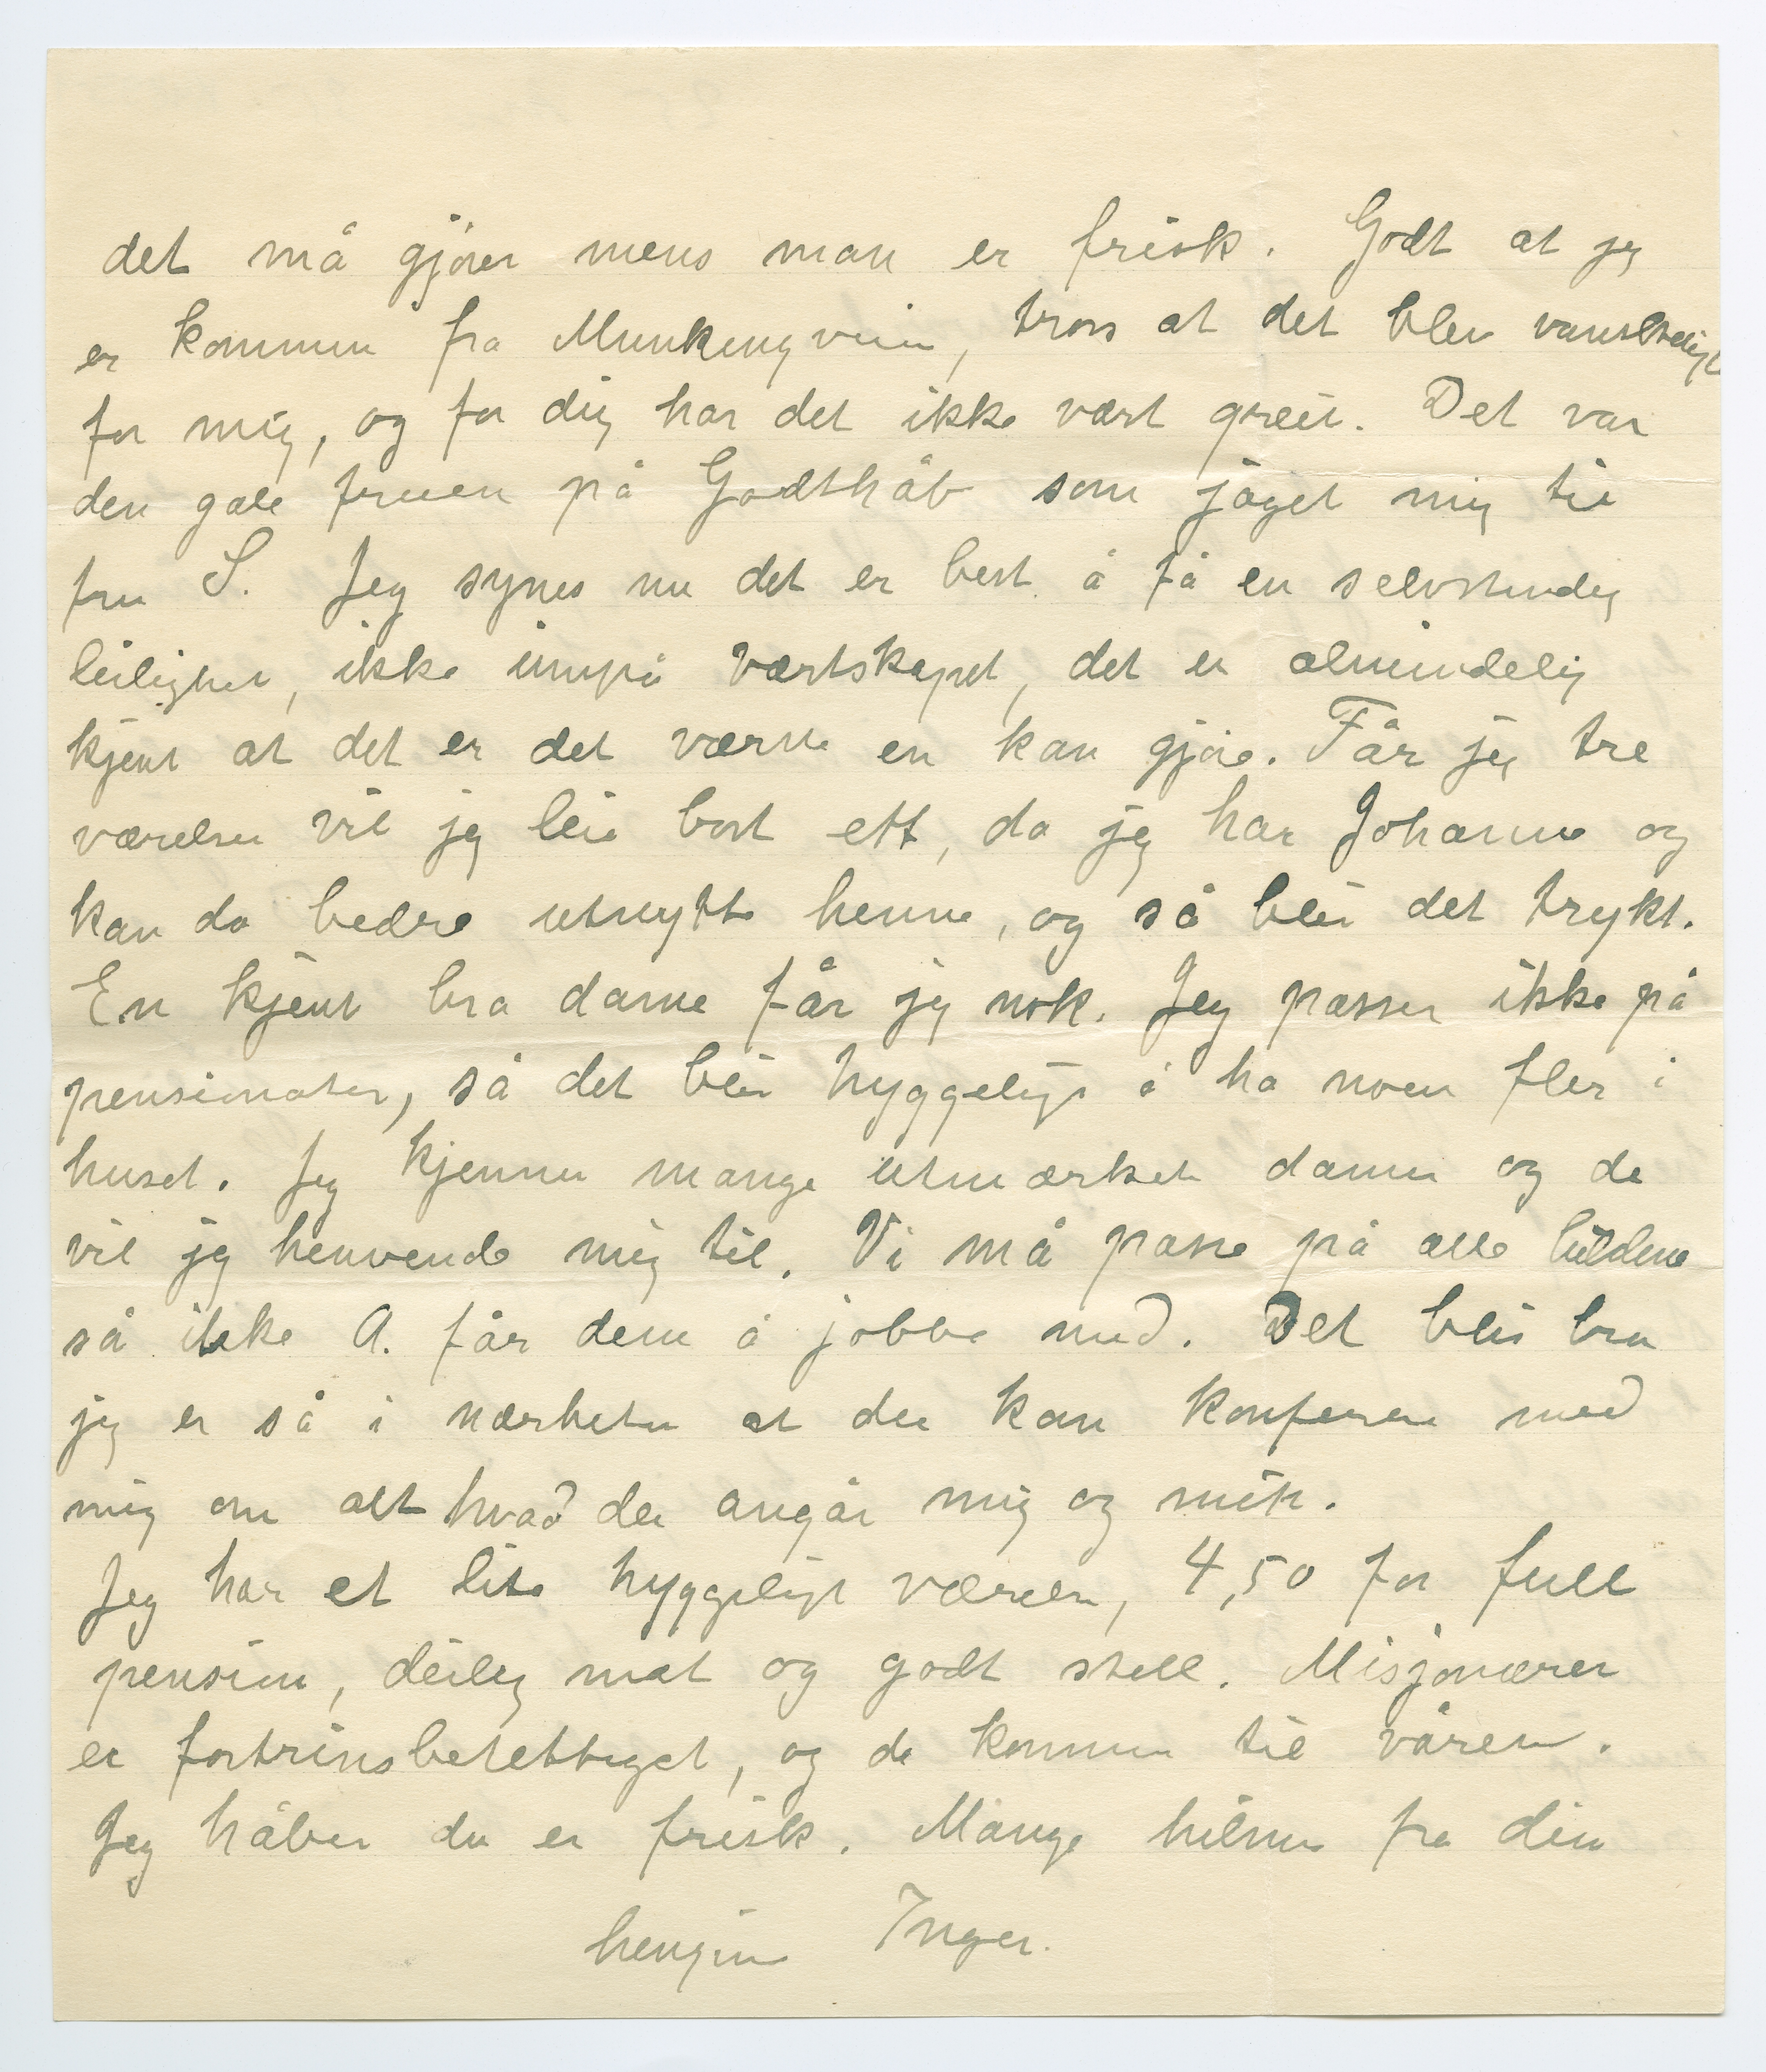 det må gjøres mens man er frisk. Godt at jeg
er kommen fra Munkengveien, tross at det blev vanskelig
for mig, og for dig har det ikke vært greit. Det var
den gale fruen på Godthåb som jaget mig til
fru S. Jeg synes nu det er best å få en selvstendig
leilighet, ikke innpå vertskapet, det er almindelig
kjent at det er det værste en kan gjøre. Får jeg tre
værelser vil jeg leie bort ett, da jeg har Johanne og
kan da bedre utnytte henne, og så blir det trykt.
En kjent bra dame får jeg nok. Jeg passer ikke på
pensionater, så det blir hyggeligt å ha noen fler i
huset. Jeg kjenner mange utmærkete damer og de
vil jeg henvende mig til. Vi må passe på alle bildene
så ikke A. får dem å jobbe med. Det blir bra
jeg er så i nærheten at du kan konferere med
mig om alt hvad der angår mig og mitt.
Jeg har et lite hyggeligt værelse, 4,50 for full
pension, deilig mat og godt stell. Misjonærer
er fortrinsberettiget, og de kommer til våren.
Jeg håber du er frisk. Mange hilsner fra din
hengivne Inger.